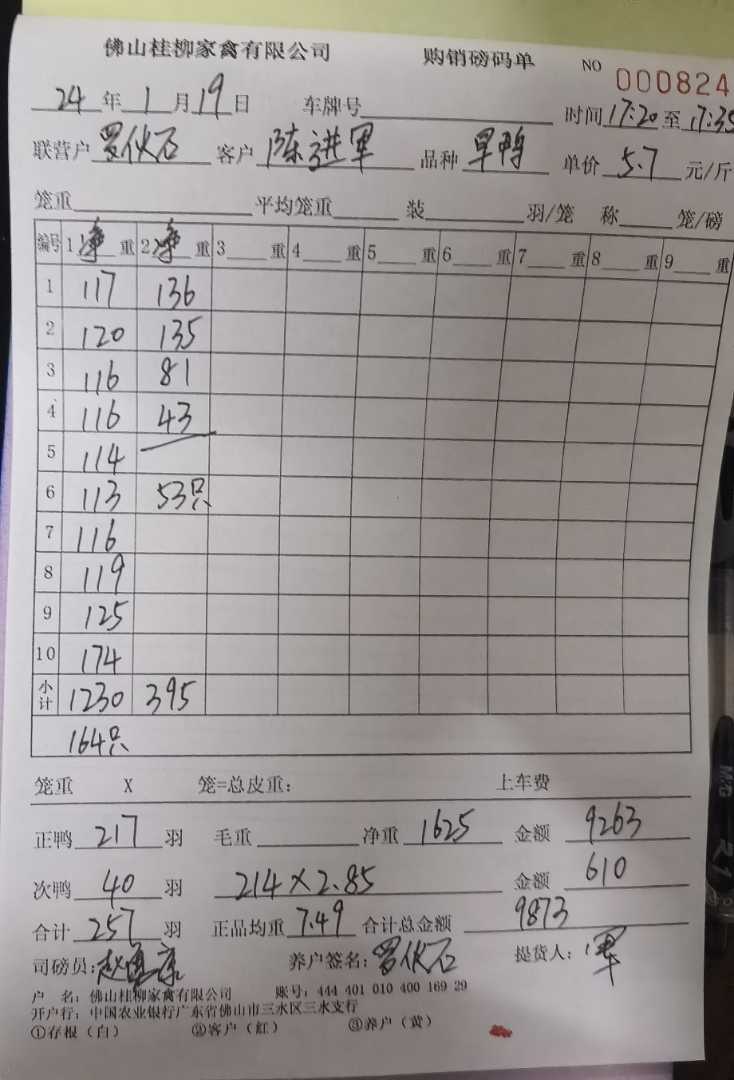 佛山桂柳家禽有限公司 购销磅码单 NO 000824
24 年 1 月 19 日 车牌号 时间 17:20 至 17:35
联营户 罗伙石 客户 陈进军 品种 旱鸭 单价 5.7 元/斤
笼重 平均笼重 装 羽/笼 称 笼/磅
编号 1 净 重 2 净 重 3 重 4 重 5 重 6 重 7 重 8 重 9 重
1 117 136
2 120 135
3 116 81
4 116 43
5 114
6 113 53只
7 116
8 119
9 125
10 174
小计 1230 395
164只
笼重 X 笼=总皮重: 上车费
正鸭 217 羽 毛重 净重 1625 金额 9263
次鸭 40 羽 214×2.85 金额 610
合计 257 羽 正品均重 7.49 合计总金额 9873
司磅员: 养户签名: 罗伙石 提货人: 军
户 名: 佛山桂柳家禽有限公司 账号: 444 401 010 400 169 29
开户行: 中国农业银行广东省佛山市三水区三水支行
①存根（白） ②客户（红） ③养户（黄）